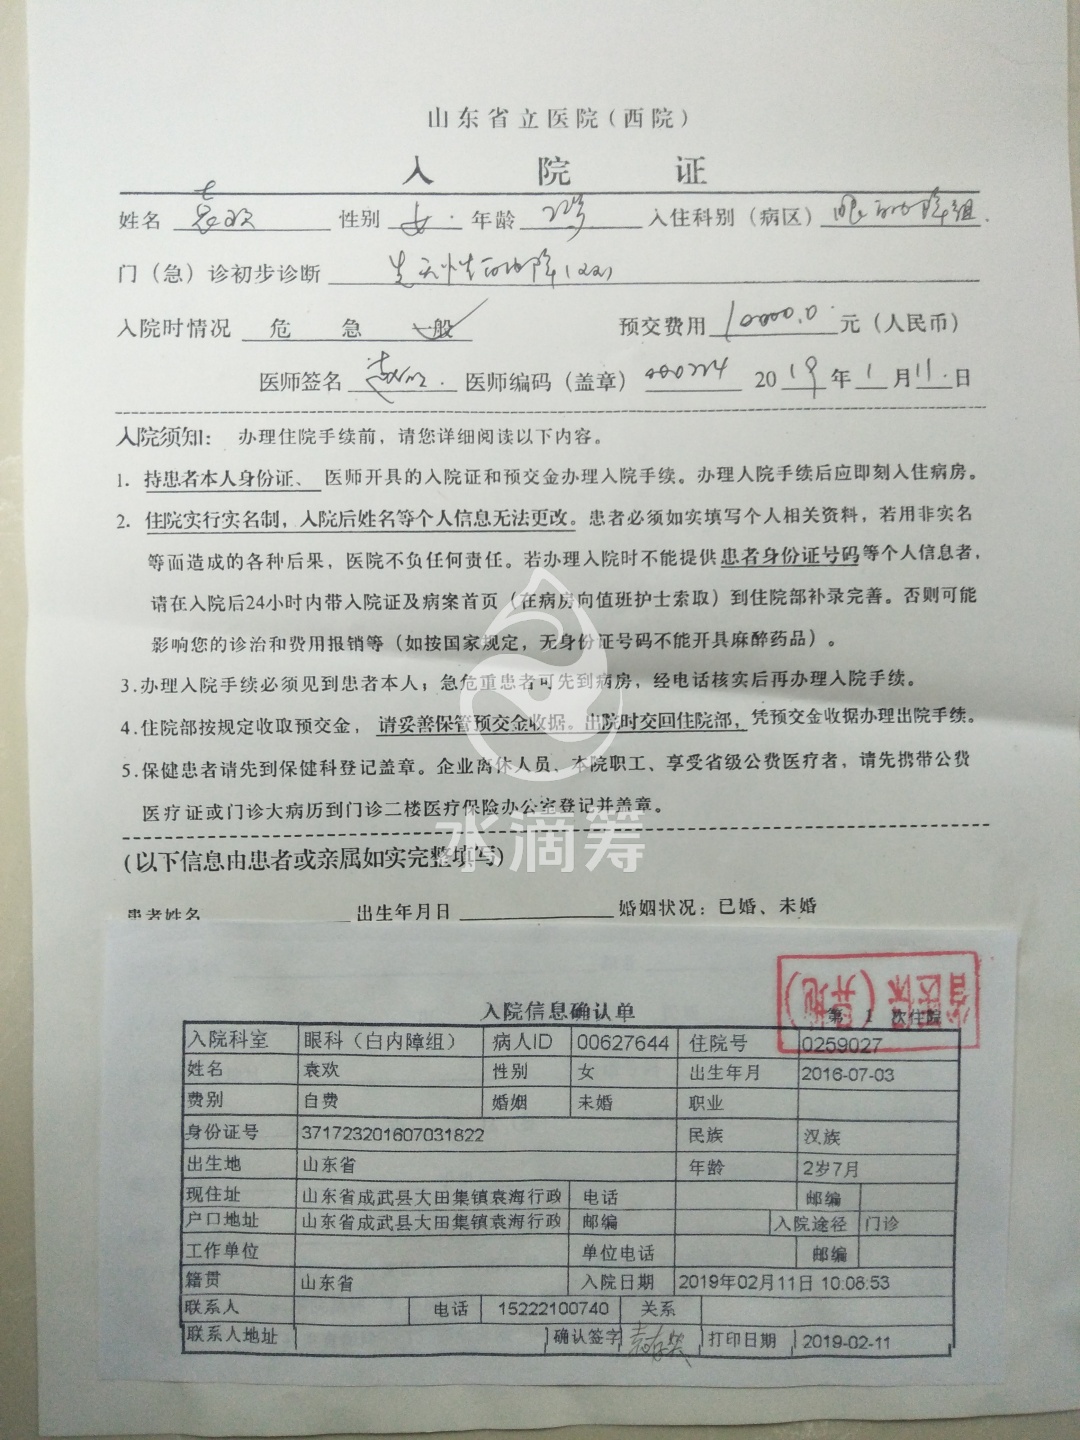 山东省立医院（西院）
入 院 证
姓名 袁欢 性别 女 年龄 入住科别（病区） 眼白内障组
门（急）诊初步诊断 先天性白内障
入院时情况 危 急 一般 预交费用 10000.0 元（人民币）
医师签名 医师编码（盖章） 000224 2019年1月11日
入院须知：办理住院手续前，请您详细阅读以下内容。
1. 持患者本人身份证、医师开具的入院证和预交金办理入院手续。办理人院手续后应即刻入住病房。
2. 住院实行实名制，入院后姓名等个人信息无法更改。患者必须如实填写个人相关资料，若用非实名
等而造成的各种后果，医院不负任何责任。若办理入院时不能提供患者身份证号码等个人信息者，
请在入院后24小时内带入院证及病案首页（在病房向值班护士索取）到住院部补录完善。否则可能
影响您的诊治和费用报销等（如按国家规定，无身份证号码不能开具麻醉药品）。
3.办理入院手续必须见到患者本人；急危重患者可先到病房，经电话核实后再办理入院手续。
4.住院部按规定收取预交金，请妥善保管预交金收据。出院时交回住院部，凭预交金收据办理出院手续。
5.保健患者请先到保健科登记盖章。企业离休人员、本院职工、享受省级公费医疗者，请先携带公费
医疗证或门诊大病历到门诊二楼医疗保险办公室登记并盖章。
水滴筹
（以下信息由患者或亲属如实完整填写）
患者姓名 出生年月日 婚姻状况：已婚、未婚
省医保（异地）
入院信息确认单
第 1 次住院
入院科室 眼科（白内障组） 病人ID 00627644 住院号 0259027
姓名 袁欢 性别 女 出生年月 2016-07-03
费别 自费 婚姻 未婚 职业
身份证号 371723201607031822 民族 汉族
出生地 山东省 年龄 2岁7月
现住址 山东省成武县大田集镇袁海行政 电话 邮编
户口地址 山东省成武县大田集镇袁海行政 邮编 入院途径 门诊
工作单位 单位电话 邮编
籍贯 山东省 入院日期 2019年02月11日 10:06:53
联系人 电话 15222100740 关系
联系人地址 确认签字 打印日期 2019-02-11